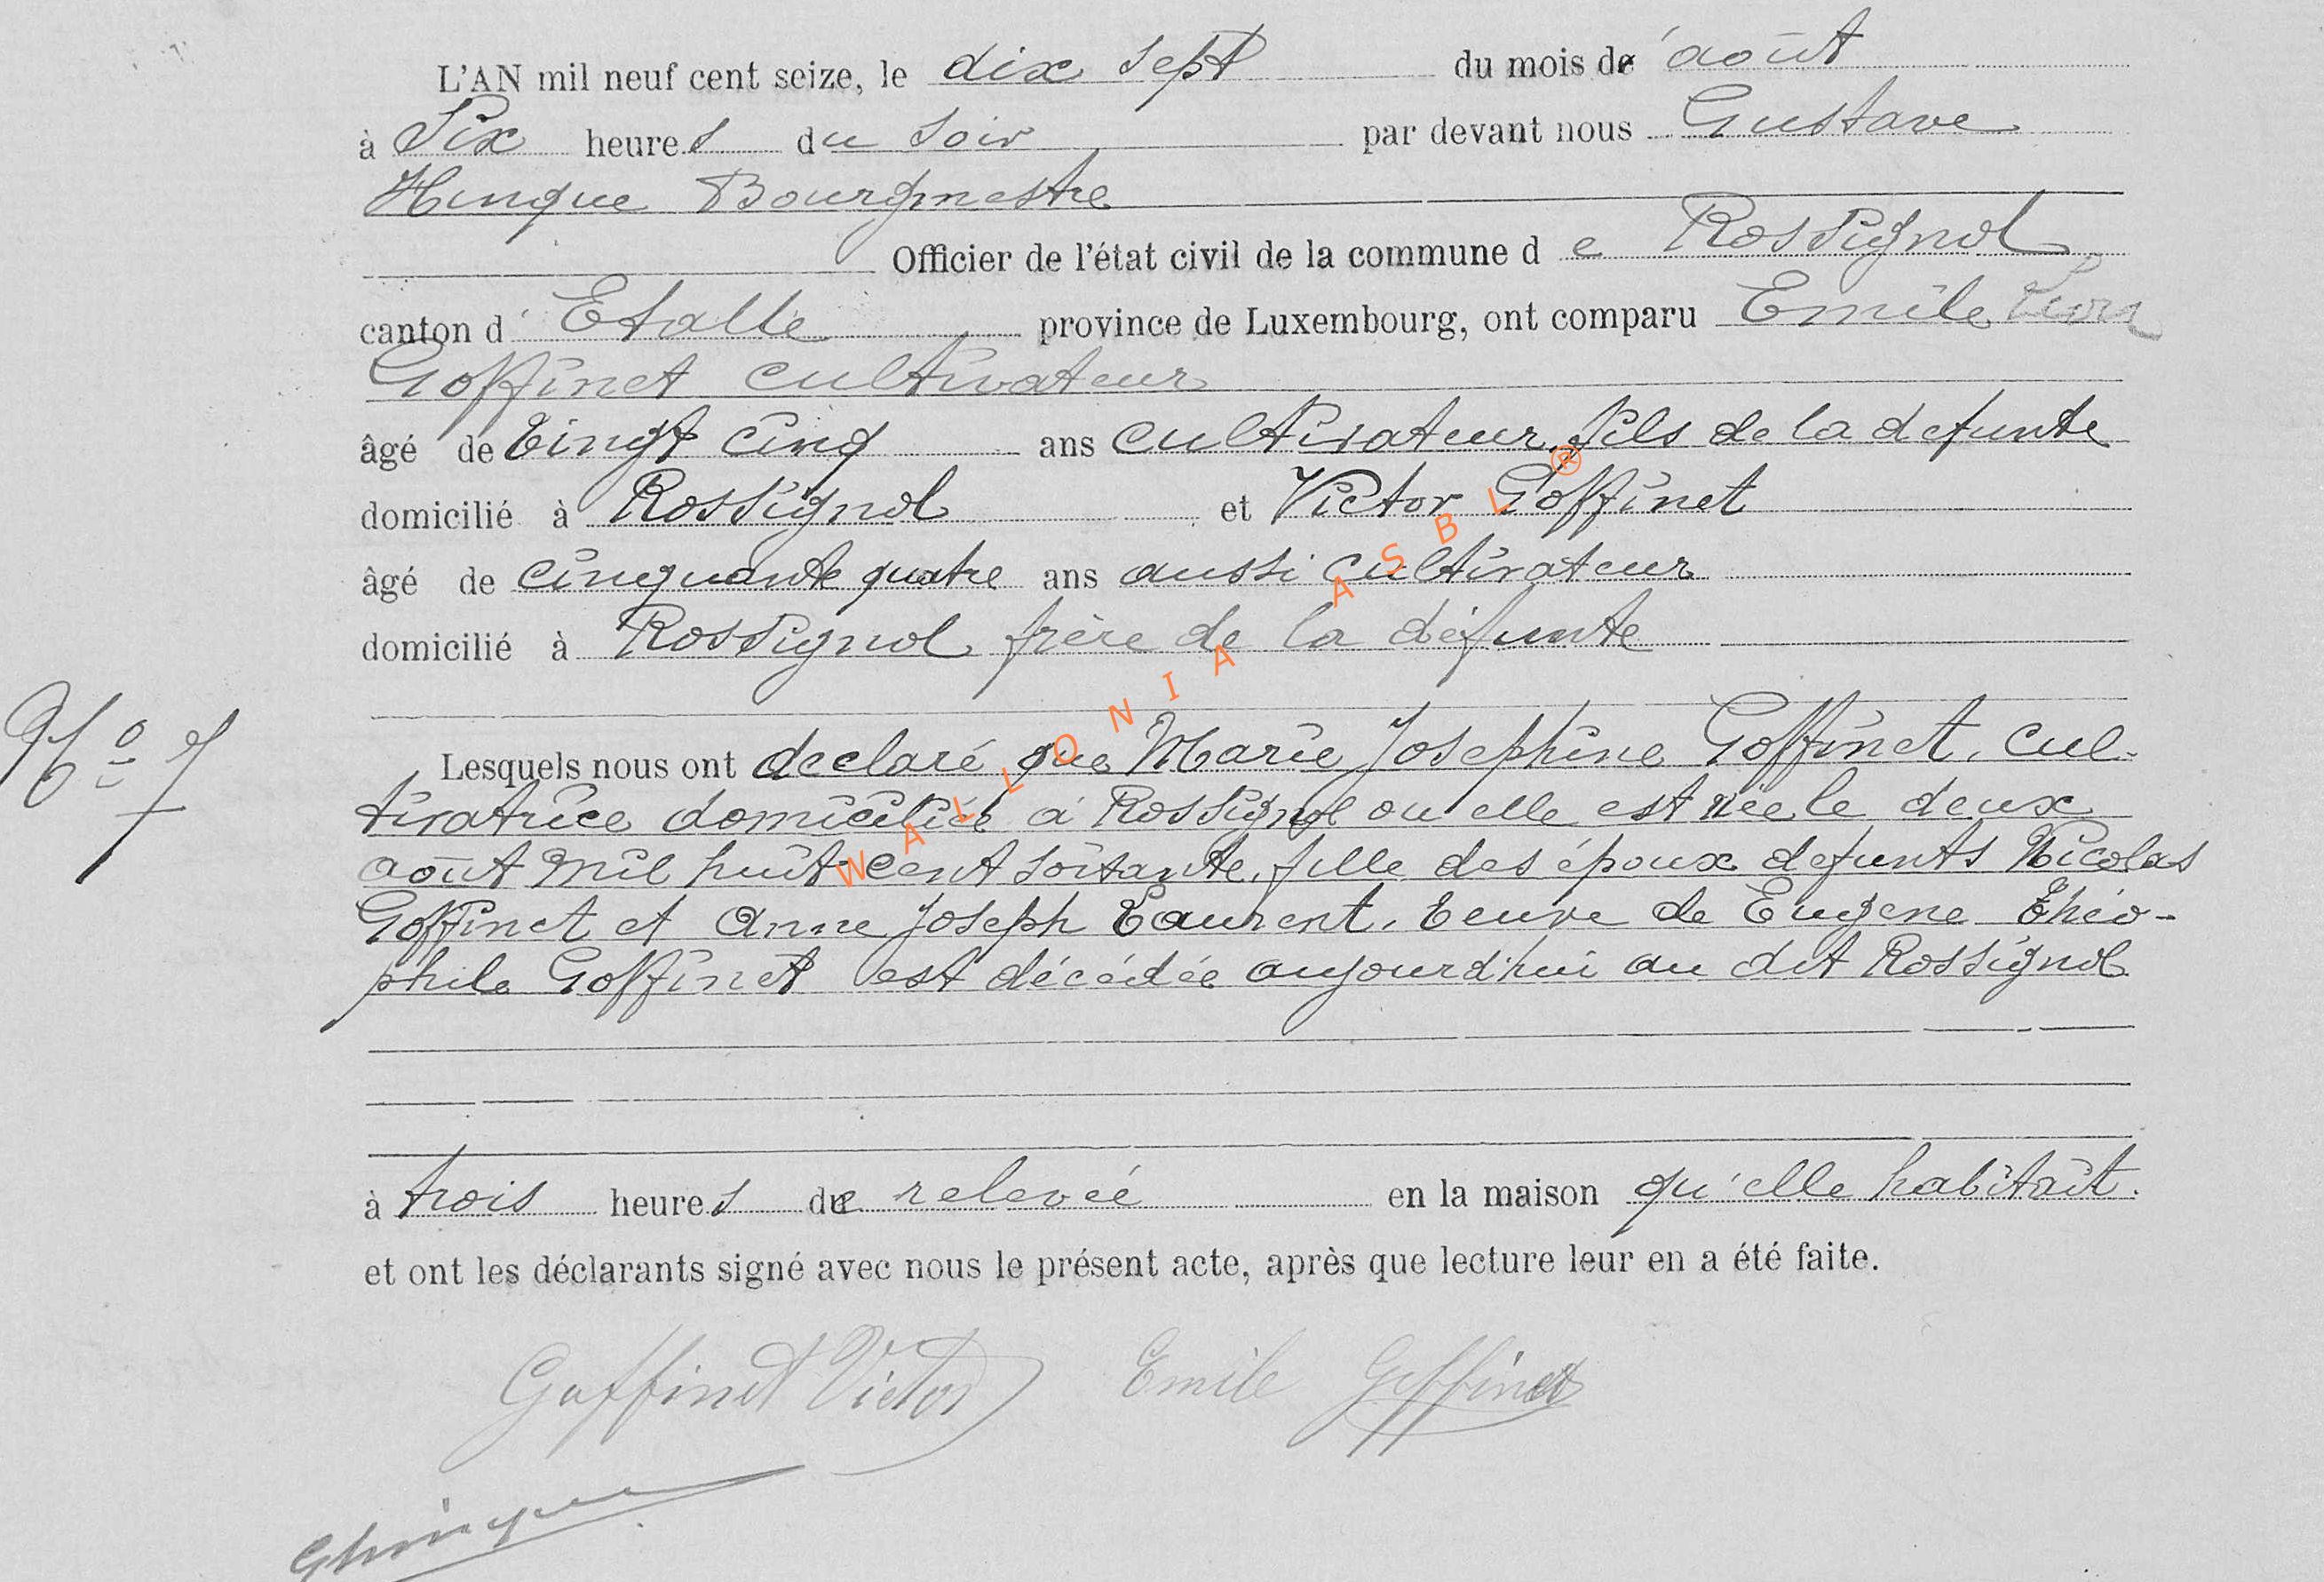 L'AN mil neuf cent seize, le dix sept du mois d' août
à Six heures du soir par devant nous Gustave
Hinque Bourgmestre
Officier de l'état civil de la commune de Rossignol
canton d' Etalle province de Luxembourg, ont comparu Emile
Goffinet cultivateur
âgé de Vingt cinq ans cultivateur, fils de la defunte
domicilié à Rossignol et Victor Goffinet
âgé de cinquante quatre ans aussi cultivateur
domicilié à Rossignol frère de la défunte
N° 7
Lesquels nous ont declaré que Marie Josephine Goffinet, cul-
tivatrice domiciliée à Rossignol ou elle est née le deux
août mil huit cent soixante, fille des époux defunts Nicolas
Goffinet et Anne Joseph Laurent, Veuve de Eugene Théo-
phile Goffinet est décédée aujourd'hui au dit Rossignol
à trois heures de relevée en la maison qu'elle habitait.
et ont les déclarants signé avec nous le présent acte, après que lecture leur en a été faite.
Goffinet Victor Emile Goffinet
GHinque
WALLONIA ASBL ®